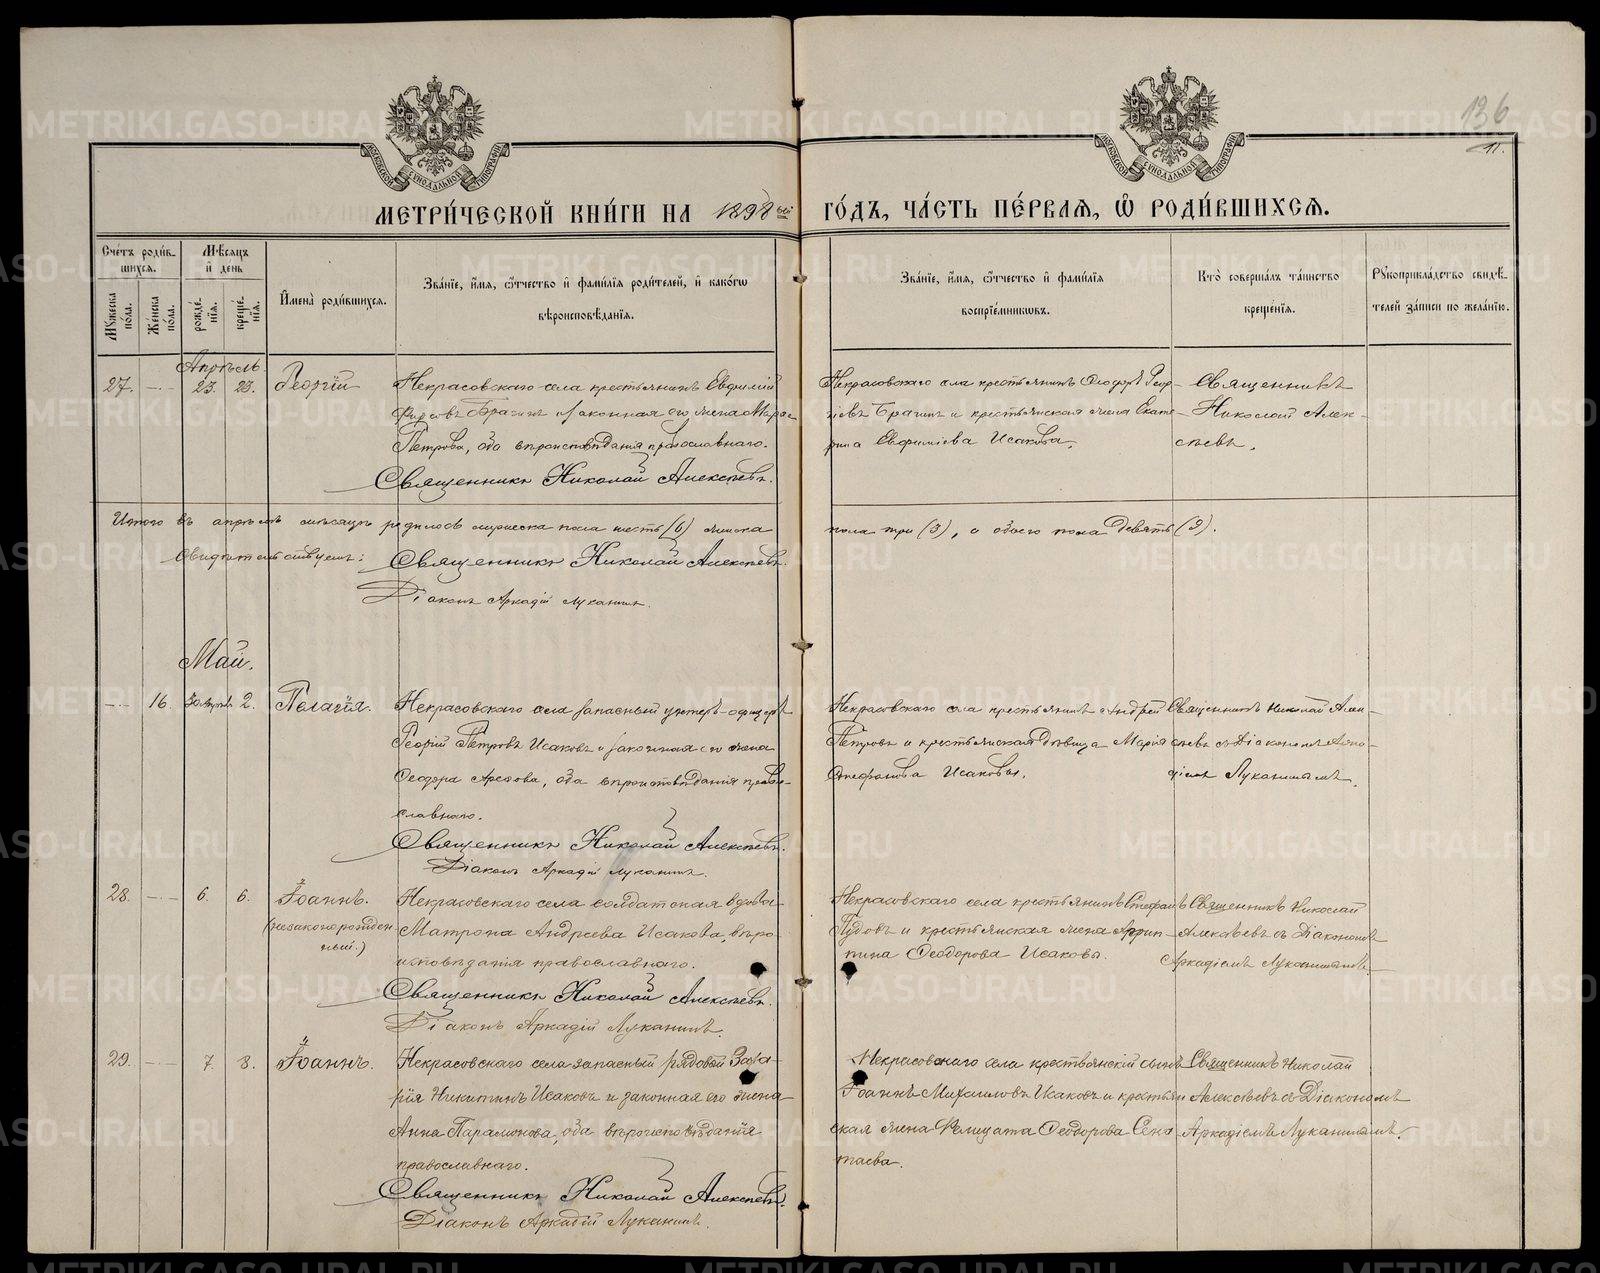 136
11.
МЕТРИ́ЧЕСКОЙ КНИ́ГИ НА 1898 ый ГО́ДЪ, ЧА́СТЬ ПЕ́РВАЯ, Ѽ РОДИ́ВШИХСЯ.
Сче́тъ роди́в-
шихся.
Мꙋжеска по́ла.
Же́нска по́ла.
Мѣ́сяцъ и҆ день
рожде́-нїя.
креще́-нїя.
И҆мена̀ роди́вшихся.
Зва́нїе, и҆́мя, ѻ҆́тчество и҆ фами́лїя роди́телей, и҆ како́гѡ
вѣроисповѣ́данїя.
Зва́нїе, и҆́мя, ѻ҆́тчество и҆ фами́лїя
воспрїе́мникѡвъ.
Кто̀ соверша́лъ та́инство
креще́нїя.
Рꙋкоприкла́дство свидѣ́-
телей за́писи по жела́нїю.
Апрѣль.
27. 23. 23. Георгій
Некрасовскаго села крестьянинъ Евфимій
Фирсовъ Брагинъ и законная его жена
Петрова, оба вѣроисповѣданія православнаго.
Священникъ Николай Алексѣевъ.
Некрасовскаго села крестьянинъ Ѳеодоръ Геор-
гіевъ Брагинъ и крестьянская жена Екате-
рина Евфиміева Исакова.
Священникъ
Николай Алек-
сѣевъ.
Итого въ апрѣлѣ мѣсяцѣ родилось мужеска пола шесть (6) женска
пола три (3), а обоего пола девять (9).
Свидѣтельствуемъ: Священникъ Николай Алексѣевъ.
Діаконъ Аркадій Луканинъ.
Май.
16. 30 апрѣля 2. Пелагія.
Некрасовскаго села запасный унтеръ-офицеръ
Георгій Петровъ Исаковъ и законная его жена
Ѳеодора Арефова, оба вѣроисповѣданія право-
славнаго.
Священникъ Николай Алексѣевъ.
Діаконъ Аркадій Луканинъ.
Некрасовскаго села крестьянинъ Андрей
Петровъ и крестьянская дѣвица Марія
Стефанова Исаковы.
Священникъ Николай Алек-
сѣевъ съ Діакономъ Арка-
діемъ Луканинымъ.
28. 6. 6. Іоаннъ.
(незаконорожден-
ный.)
Некрасовскаго села солдатская вдова
Матрона Андреева Исакова, вѣро-
исповѣданія православнаго.
Священникъ Николай Алексѣевъ.
Діаконъ Аркадій Луканинъ.
Некрасовскаго села крестьянинъ Стефанъ
Пудовъ и крестьянская жена Агрип-
пина Ѳеодорова Исаковы.
Священникъ Николай
Алексѣевъ съ Діакономъ
Аркадіемъ Луканинымъ.
29. 7. 8. Іоаннъ.
Некрасовскаго села запасный рядовой Заха-
рія Никитинъ Исаковъ и законная его жена
Анна Парамонова, оба вѣроисповѣданія
православнаго.
Священникъ Николай Алексѣевъ.
Діаконъ Аркадій Луканинъ.
Некрасовскаго села крестьянскій сынъ
Іоаннъ Михаиловъ Исаковъ и крестьян-
ская жена Фелицата Ѳеодорова Сена-
таева.
Священникъ Николай
Алексѣевъ съ Діакономъ
Аркадіемъ Луканинымъ.
METRIKI.GASO-URAL.RU